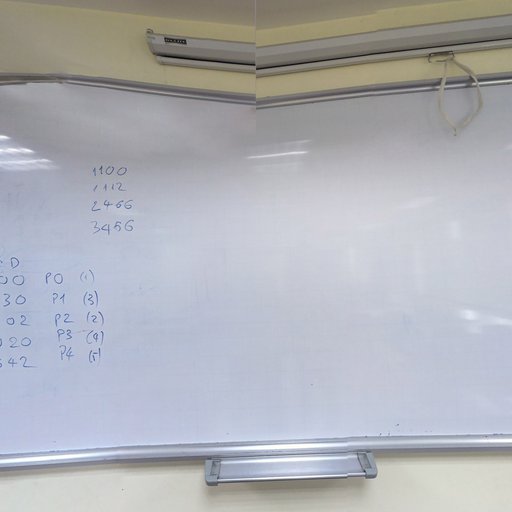 1100
1112
2466
3456
D
00 P0 (1)
30 P1 (3)
02 P2 (2)
020 P3 (4)
642 P4 (5)